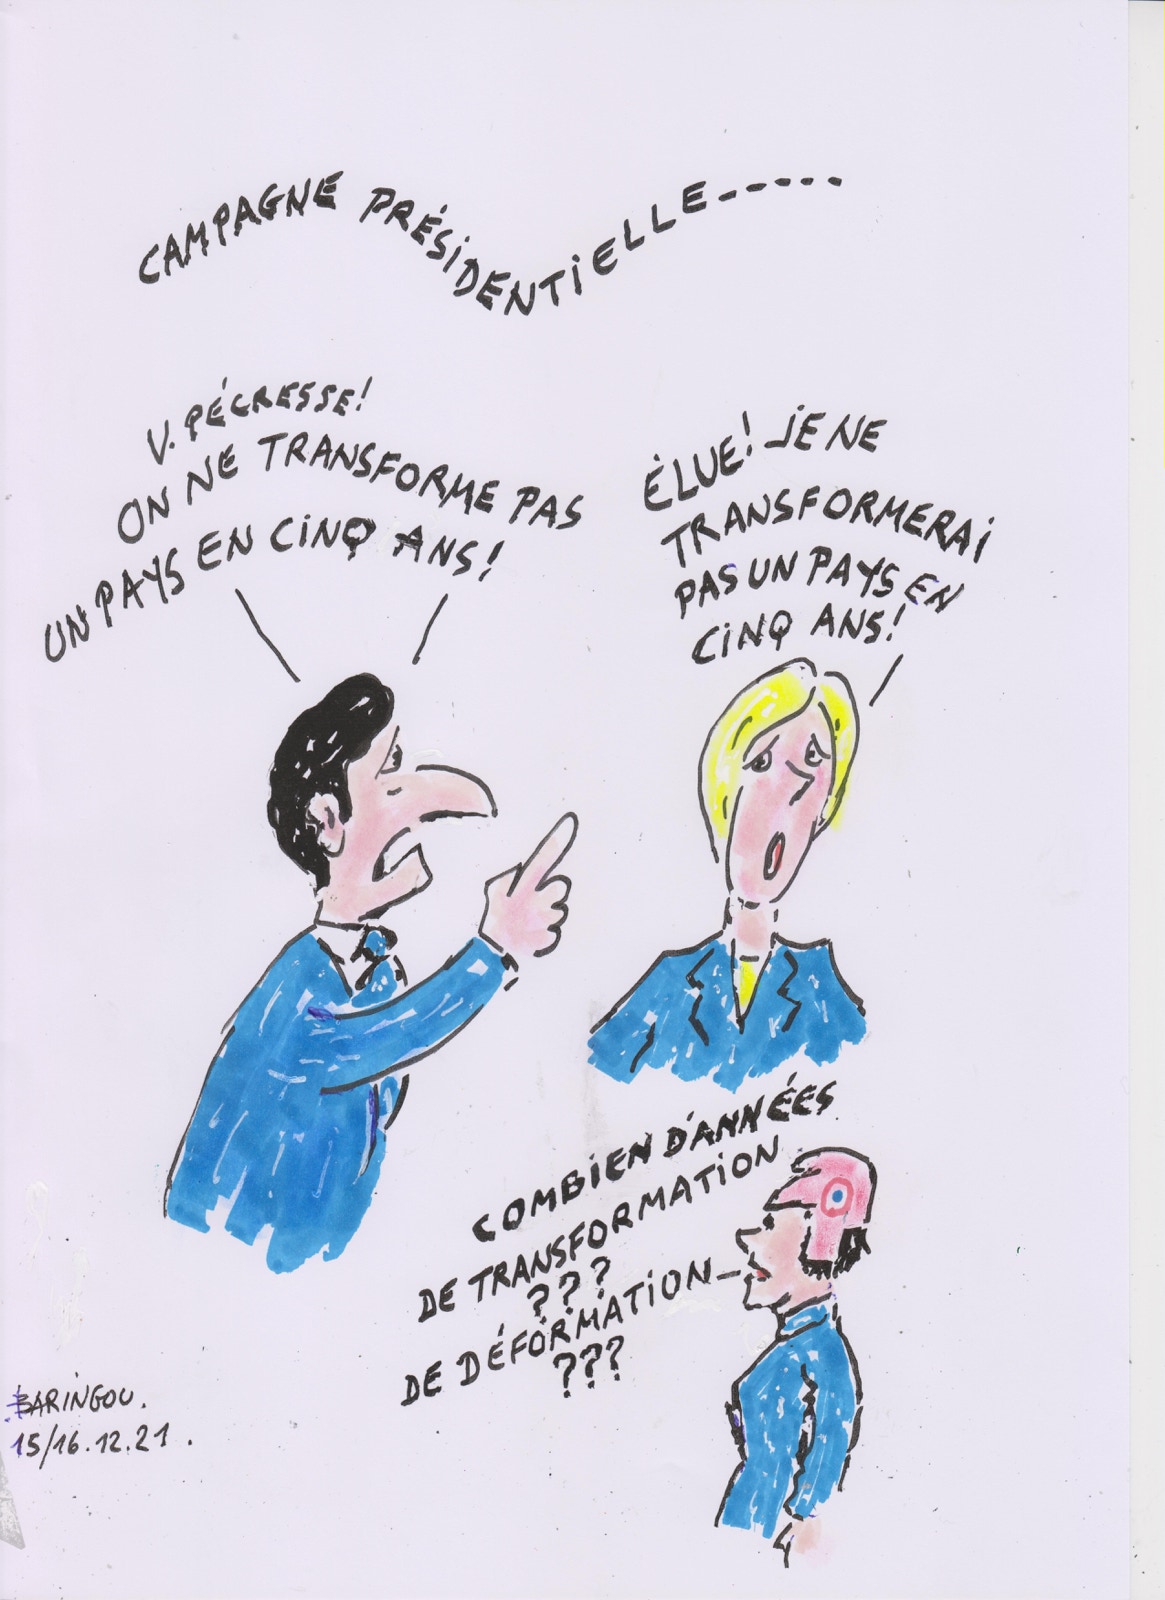 CAMPAGNE PRÉSIDENTIELLE------
V. PÉCRESSE!
ON NE TRANSFORME PAS
UN PAYS EN CINQ ANS!
ÉLUE! JE NE
TRANSFORMERAI
PAS UN PAYS EN
CINQ ANS!
COMBIEN D'ANNÉES
DE TRANSFORMATION
???
DE DÉFORMATION
???
BARINGOU.
15/16.12.21.